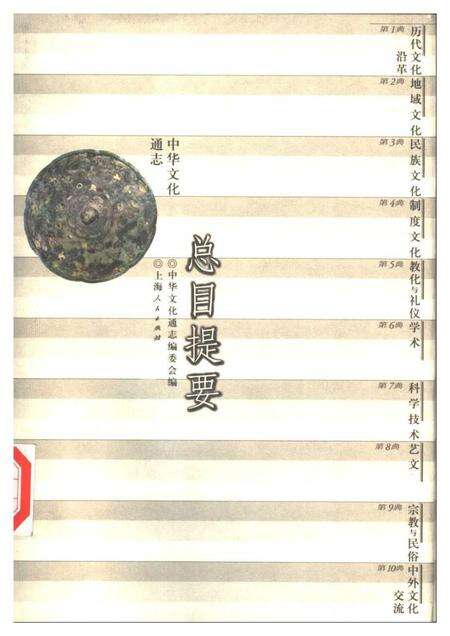 第1典
历代文化
沿革
第2典
地域文化
第3典
民族文化
第4典
制度文化
第5典
教化与礼仪
第6典
学术
第7典
科学技术
第8典
艺文
第9典
宗教与民俗
第10典
中外文化
交流
中华文化
通志
总目提要
◎中华文化通志编委会编
◎上海人民出版社